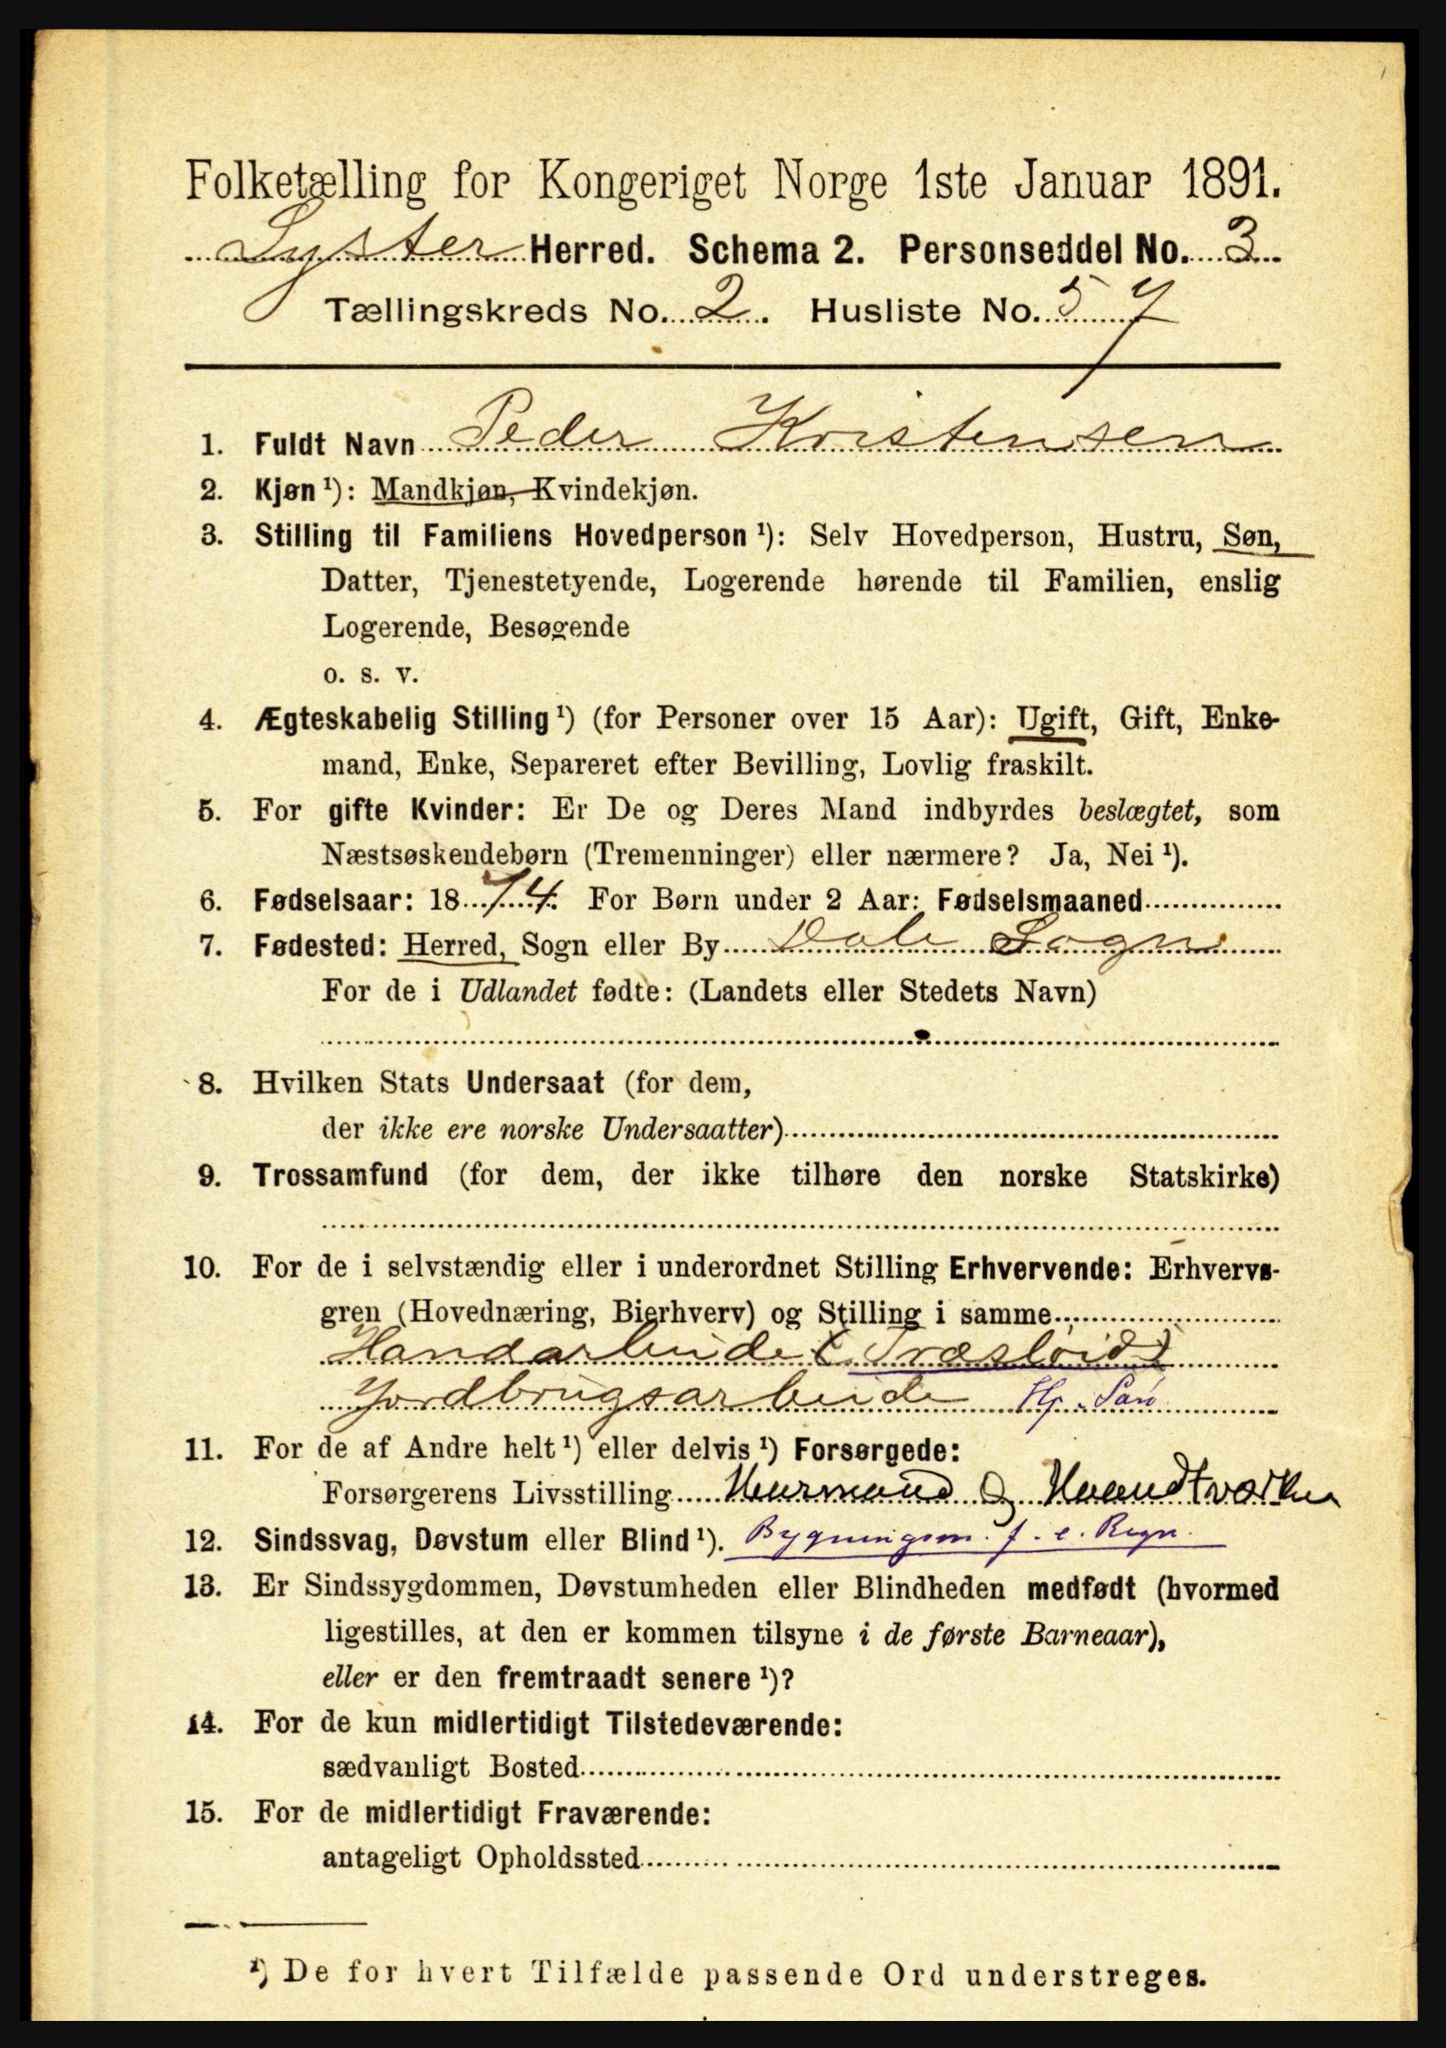 Folketælling for Kongeriget Norge 1ste Januar 1891.
Lyster Herred. Schema 2. Personseddel No. 3
Tællingskreds No. 2. Husliste No. 57
1. Fuldt Navn Peder Kristensen
2. Kjøn ¹): Mandkjøn, Kvindekjøn.
3. Stilling til Familiens Hovedperson ¹): Selv Hovedperson, Hustru, Søn,
Datter, Tjenestetyende, Logerende hørende til Familien, enslig
Logerende, Besøgende
o. s. v.
4. Ægteskabelig Stilling ¹) (for Personer over 15 Aar): Ugift, Gift, Enke-
mand, Enke, Separeret efter Bevilling, Lovlig fraskilt.
5. For gifte Kvinder: Er De og Deres Mand indbyrdes beslægtet, som
Næstsøskendebørn (Tremenninger) eller nærmere? Ja, Nei ¹).
6. Fødselsaar: 1874. For Børn under 2 Aar: Fødselsmaaned
7. Fødested: Herred, Sogn eller By Dale Sogn
For de i Udlandet fødte: (Landets eller Stedets Navn)
8. Hvilken Stats Undersaat (for dem,
der ikke ere norske Undersaatter)
9. Trossamfund (for dem, der ikke tilhøre den norske Statskirke)
10. For de i selvstændig eller i underordnet Stilling Erhvervende: Erhvervs-
gren (Hovednæring, Bierhverv) og Stilling i samme
Handarbeide (Træsløid)
Jordbrugsarbeide Hp. Søn
11. For de af Andre helt ¹) eller delvis ¹) Forsørgede:
Forsørgerens Livsstilling Huusmand og Haandtværker
12. Sindssvag, Døvstum eller Blind ¹). Bygningsm. f. e. Regn.
13. Er Sindssygdommen, Døvstumheden eller Blindheden medfødt (hvormed
ligestilles, at den er kommen tilsyne i de første Barneaar),
eller er den fremtraadt senere ¹)?
14. For de kun midlertidigt Tilstedeværende:
sædvanligt Bosted
15. For de midlertidigt Fraværende:
antageligt Opholdssted
¹) De for hvert Tilfælde passende Ord understreges.